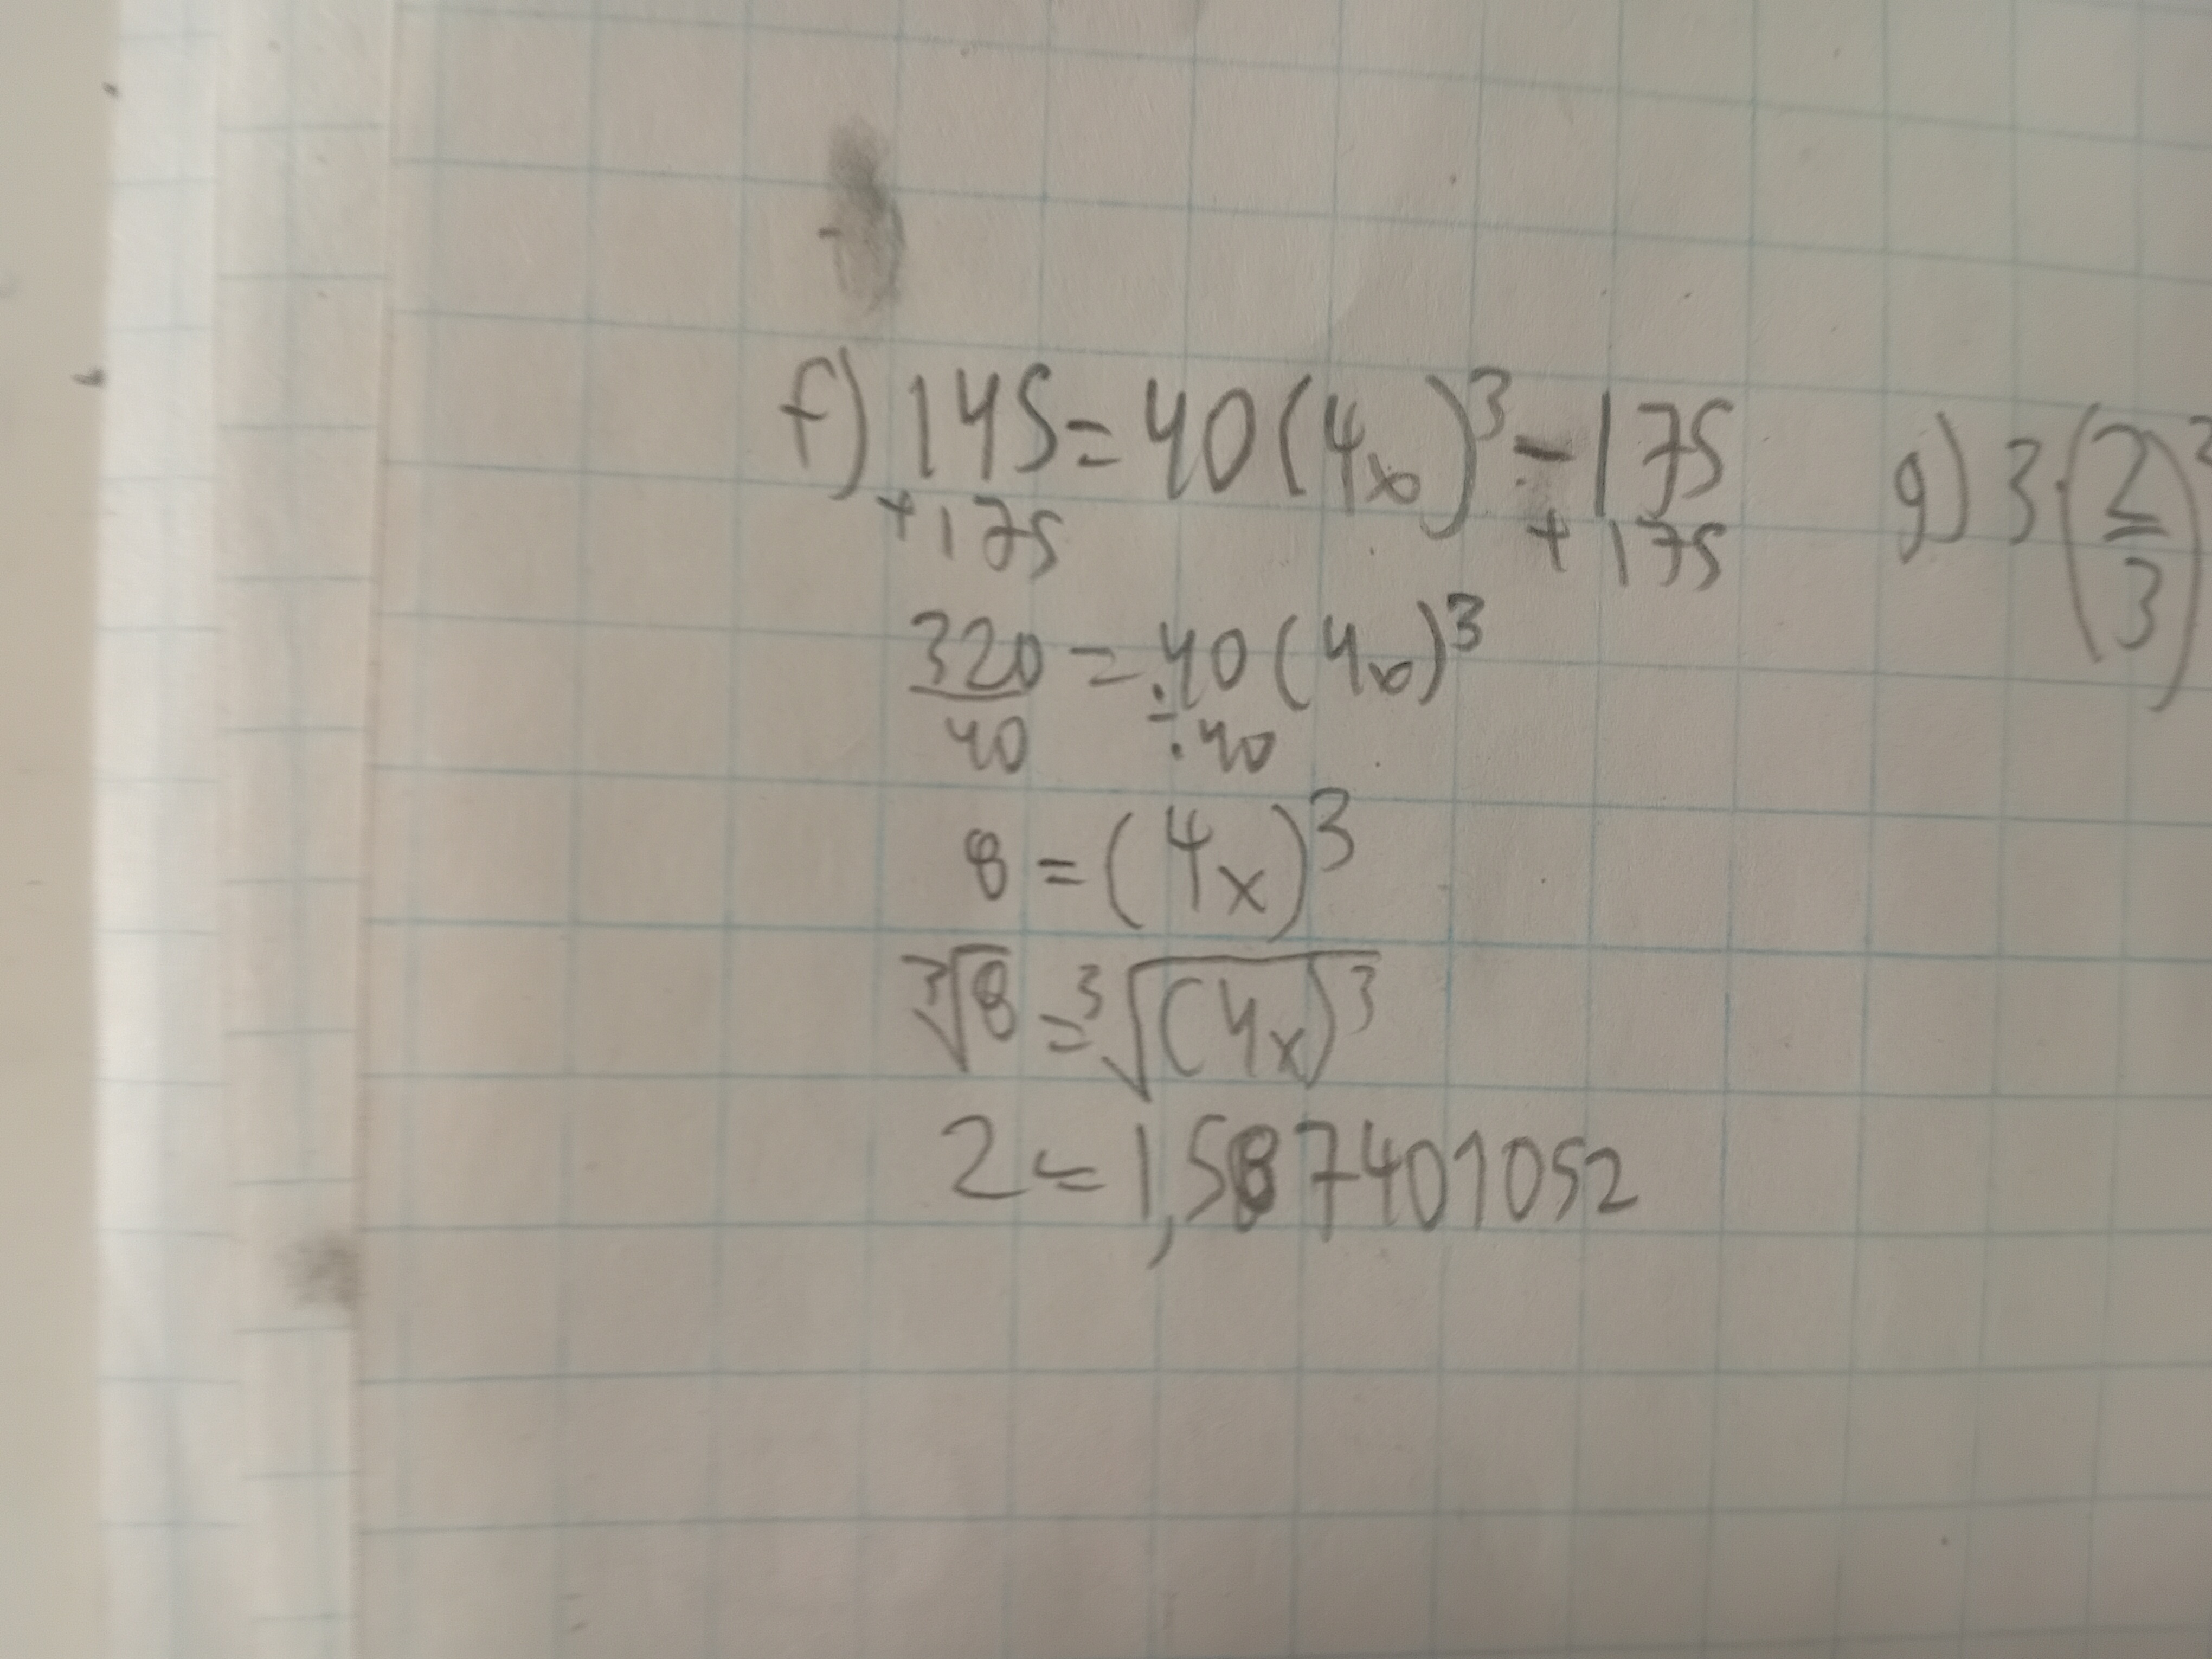 f) 145 = 40(4x)³ - 175
+175 + 175
320 = 40(4x)³
40 ÷ 40
8 = (4x)³
³√8 = ³√(4x)³
2 = 1,587401052
g) 3·(2/3)²